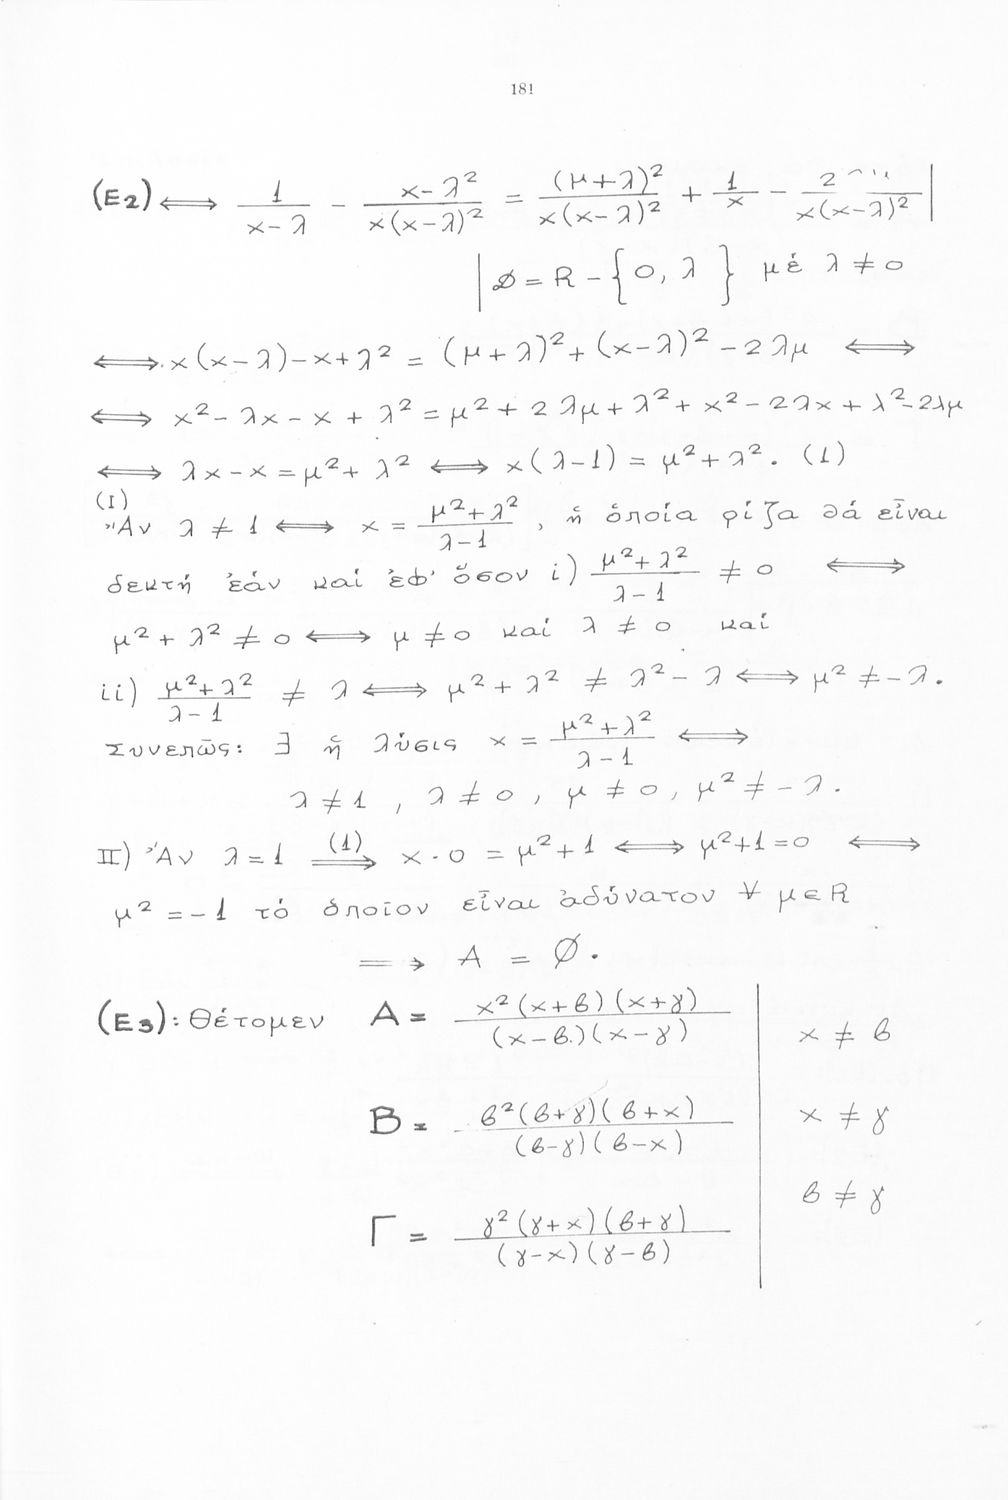 181
(E2) ⟺ 1/(x-λ) - (x-λ²)/(x(x-λ)²) = (μ+λ)²/(x(x-λ)²) + 1/x - 2 /(x(x-λ)²) |
| 𝒟 = R - {0, λ} μέ λ ≠ 0
⟺ x(x-λ)-x+λ² = (μ+λ)²+(x-λ)²-2λμ ⟺
⟺ x²-λx-x+λ² = μ²+2λμ+λ²+x²-2λx+λ²-2λμ
⟺ λx-x = μ²+λ² ⟺ x(λ-1) = μ²+λ². (1)
(I)
Ἄν λ ≠ 1 ⟺ x = (μ²+λ²)/(λ-1), ἡ ὁποία ρίζα θά εἶναι
δεκτή ἐάν καί ἐφ' ὅσον i) (μ²+λ²)/(λ-1) ≠ 0 ⟺
μ²+λ² ≠ 0 ⟺ μ ≠ 0 καί λ ≠ 0 καί
ii) (μ²+λ²)/(λ-1) ≠ λ ⟺ μ²+λ² ≠ λ²-λ ⟺ μ² ≠ -λ.
Συνεπῶς: ∃ ἡ λύσις x = (μ²+λ²)/(λ-1) ⟺
λ ≠ 1, λ ≠ 0, μ ≠ 0, μ² ≠ -λ.
II) Ἄν λ = 1 (1)⟹ x·0 = μ²+1 ⟺ μ²+1=0 ⟺
μ² = -1 τό ὁποῖον εἶναι ἀδύνατον ∀ μ∈R
⟹ A = ∅.
(E3): Θέτομεν A = x²(x+β)(x+γ)/((x-β)(x-γ)) | x ≠ β
B = β²(β+γ)(β+x)/((β-γ)(β-x)) | x ≠ γ
β ≠ γ
Γ = γ²(γ+x)(β+γ)/((γ-x)(γ-β))